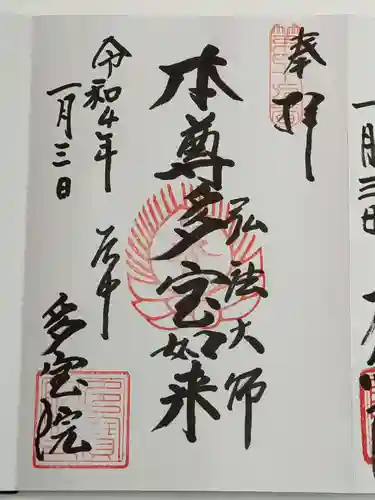 奉拝
弘法大師
本尊多宝如来
令和4年
一月三日
谷中
多宝院
一月三日